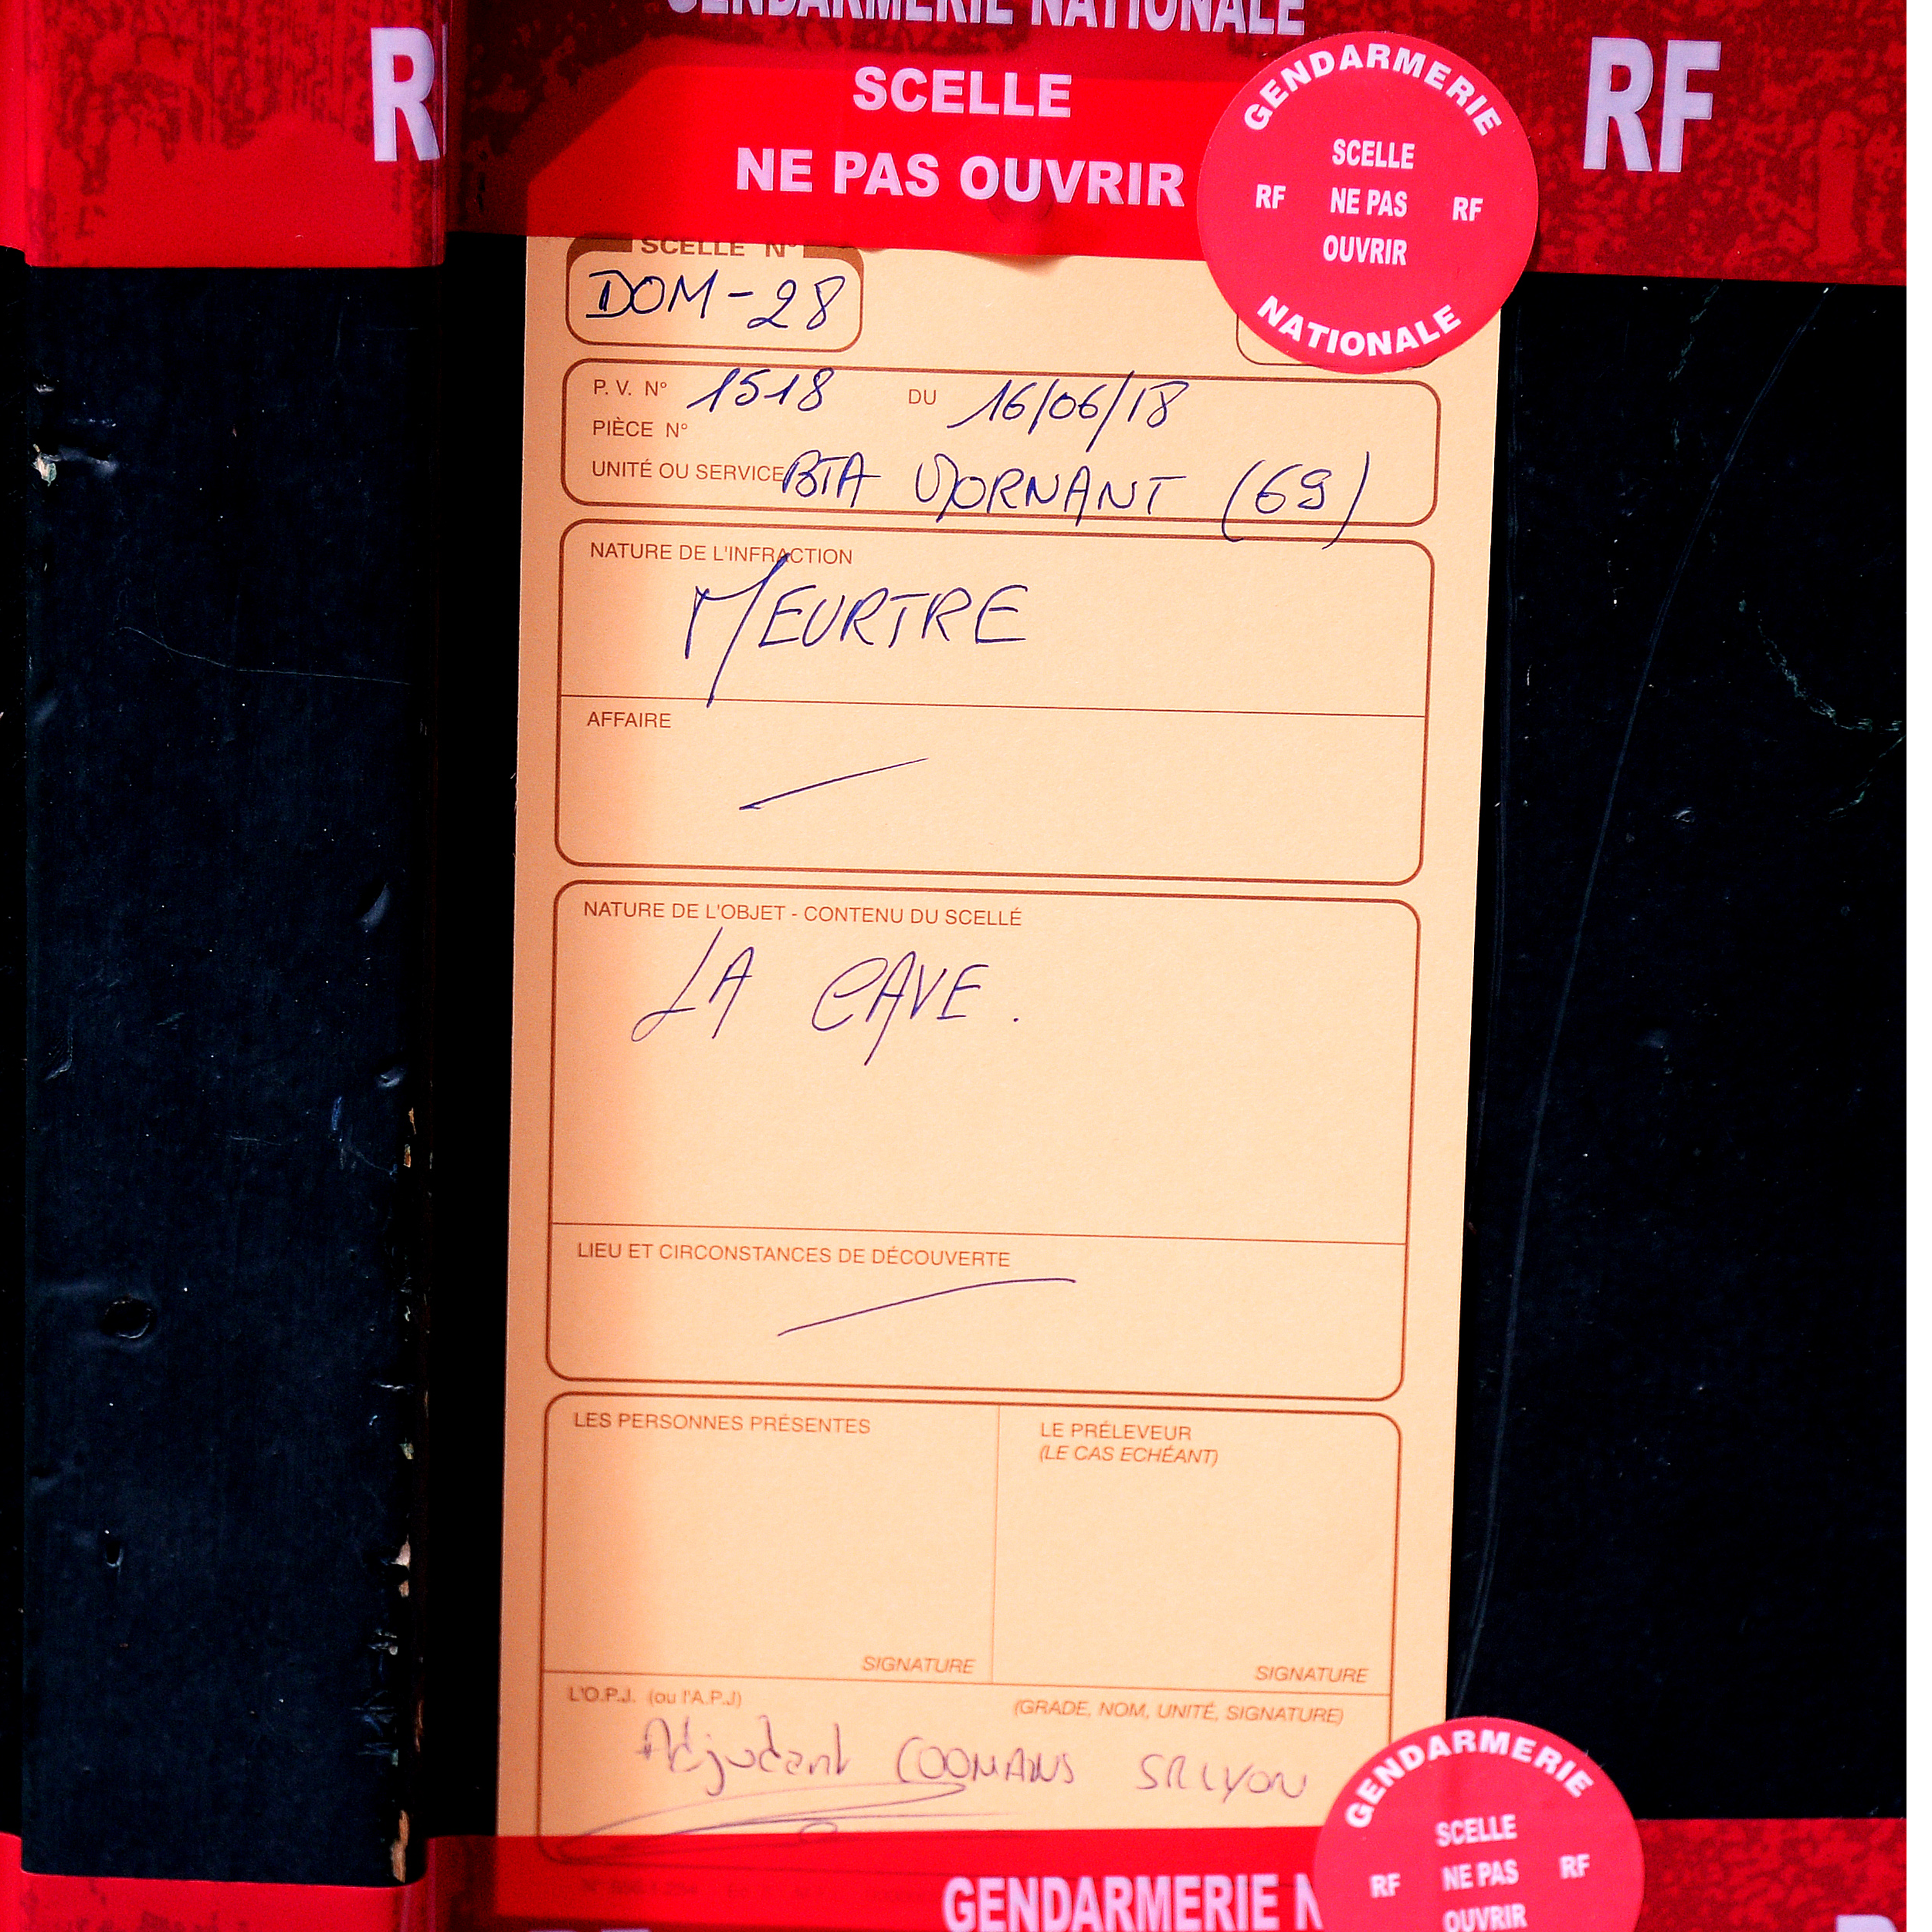 GENDARMERIE NATIONALE
RF
SCELLE
NE PAS OUVRIR
GENDARMERIE
SCELLE
RF NE PAS RF
OUVRIR
NATIONALE
RF
SCELLE N°
DOM-28
P. V. N° 1518 DU 16/06/18
PIÈCE N°
UNITÉ OU SERVICE BTA MORNANT (69)
NATURE DE L'INFRACTION
MEURTRE
AFFAIRE
NATURE DE L'OBJET - CONTENU DU SCELLÉ
LA CAVE.
LIEU ET CIRCONSTANCES DE DÉCOUVERTE
LES PERSONNES PRÉSENTES
LE PRÉLEVEUR
(LE CAS ECHÉANT)
SIGNATURE
SIGNATURE
L'O.P.J. (ou l'A.P.J) (GRADE, NOM, UNITÉ, SIGNATURE)
Adjudant COOMANS SR LYON
GENDARMERIE N
GENDARMERIE
SCELLE
RF NE PAS RF
OUVRIR